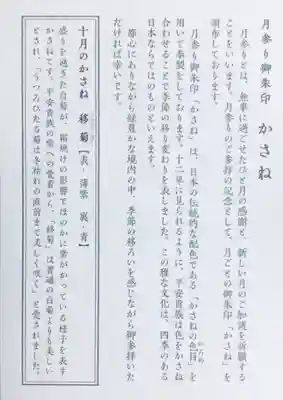 月参り御朱印 かさね
月参りとは、無事に過ごせたひと月の感謝と、新しい月のご加護を祈願する
ことをいいます。月参りのご参拝の記念として、月ごとの御朱印「かさね」を
頒布しております。
月参り御朱印「かさね」は、日本の伝統的な配色である「かさねの色目」を
用いて奉製をしております。十二単に見られるように、平安貴族は色をかさね
合わせることで季節の移り変わりを表しました。この雅な文化は、四季のある
日本ならではのものといえます。
都心にありながら緑豊かな境内の中、季節の移ろいを感じながら御参拝いた
だければ幸いです。
十月のかさね 移菊【表・薄紫 裏・青】
盛りを過ぎた白菊が、霜焼けの影響でほのかに紫がかっている様子を表す
かさねです。平安貴族の紫への愛着から、「移菊」は普通の白菊よりも美しい
とされ、「うつろひたる菊は冬枯れの直前まで美しく咲く」と愛されました。